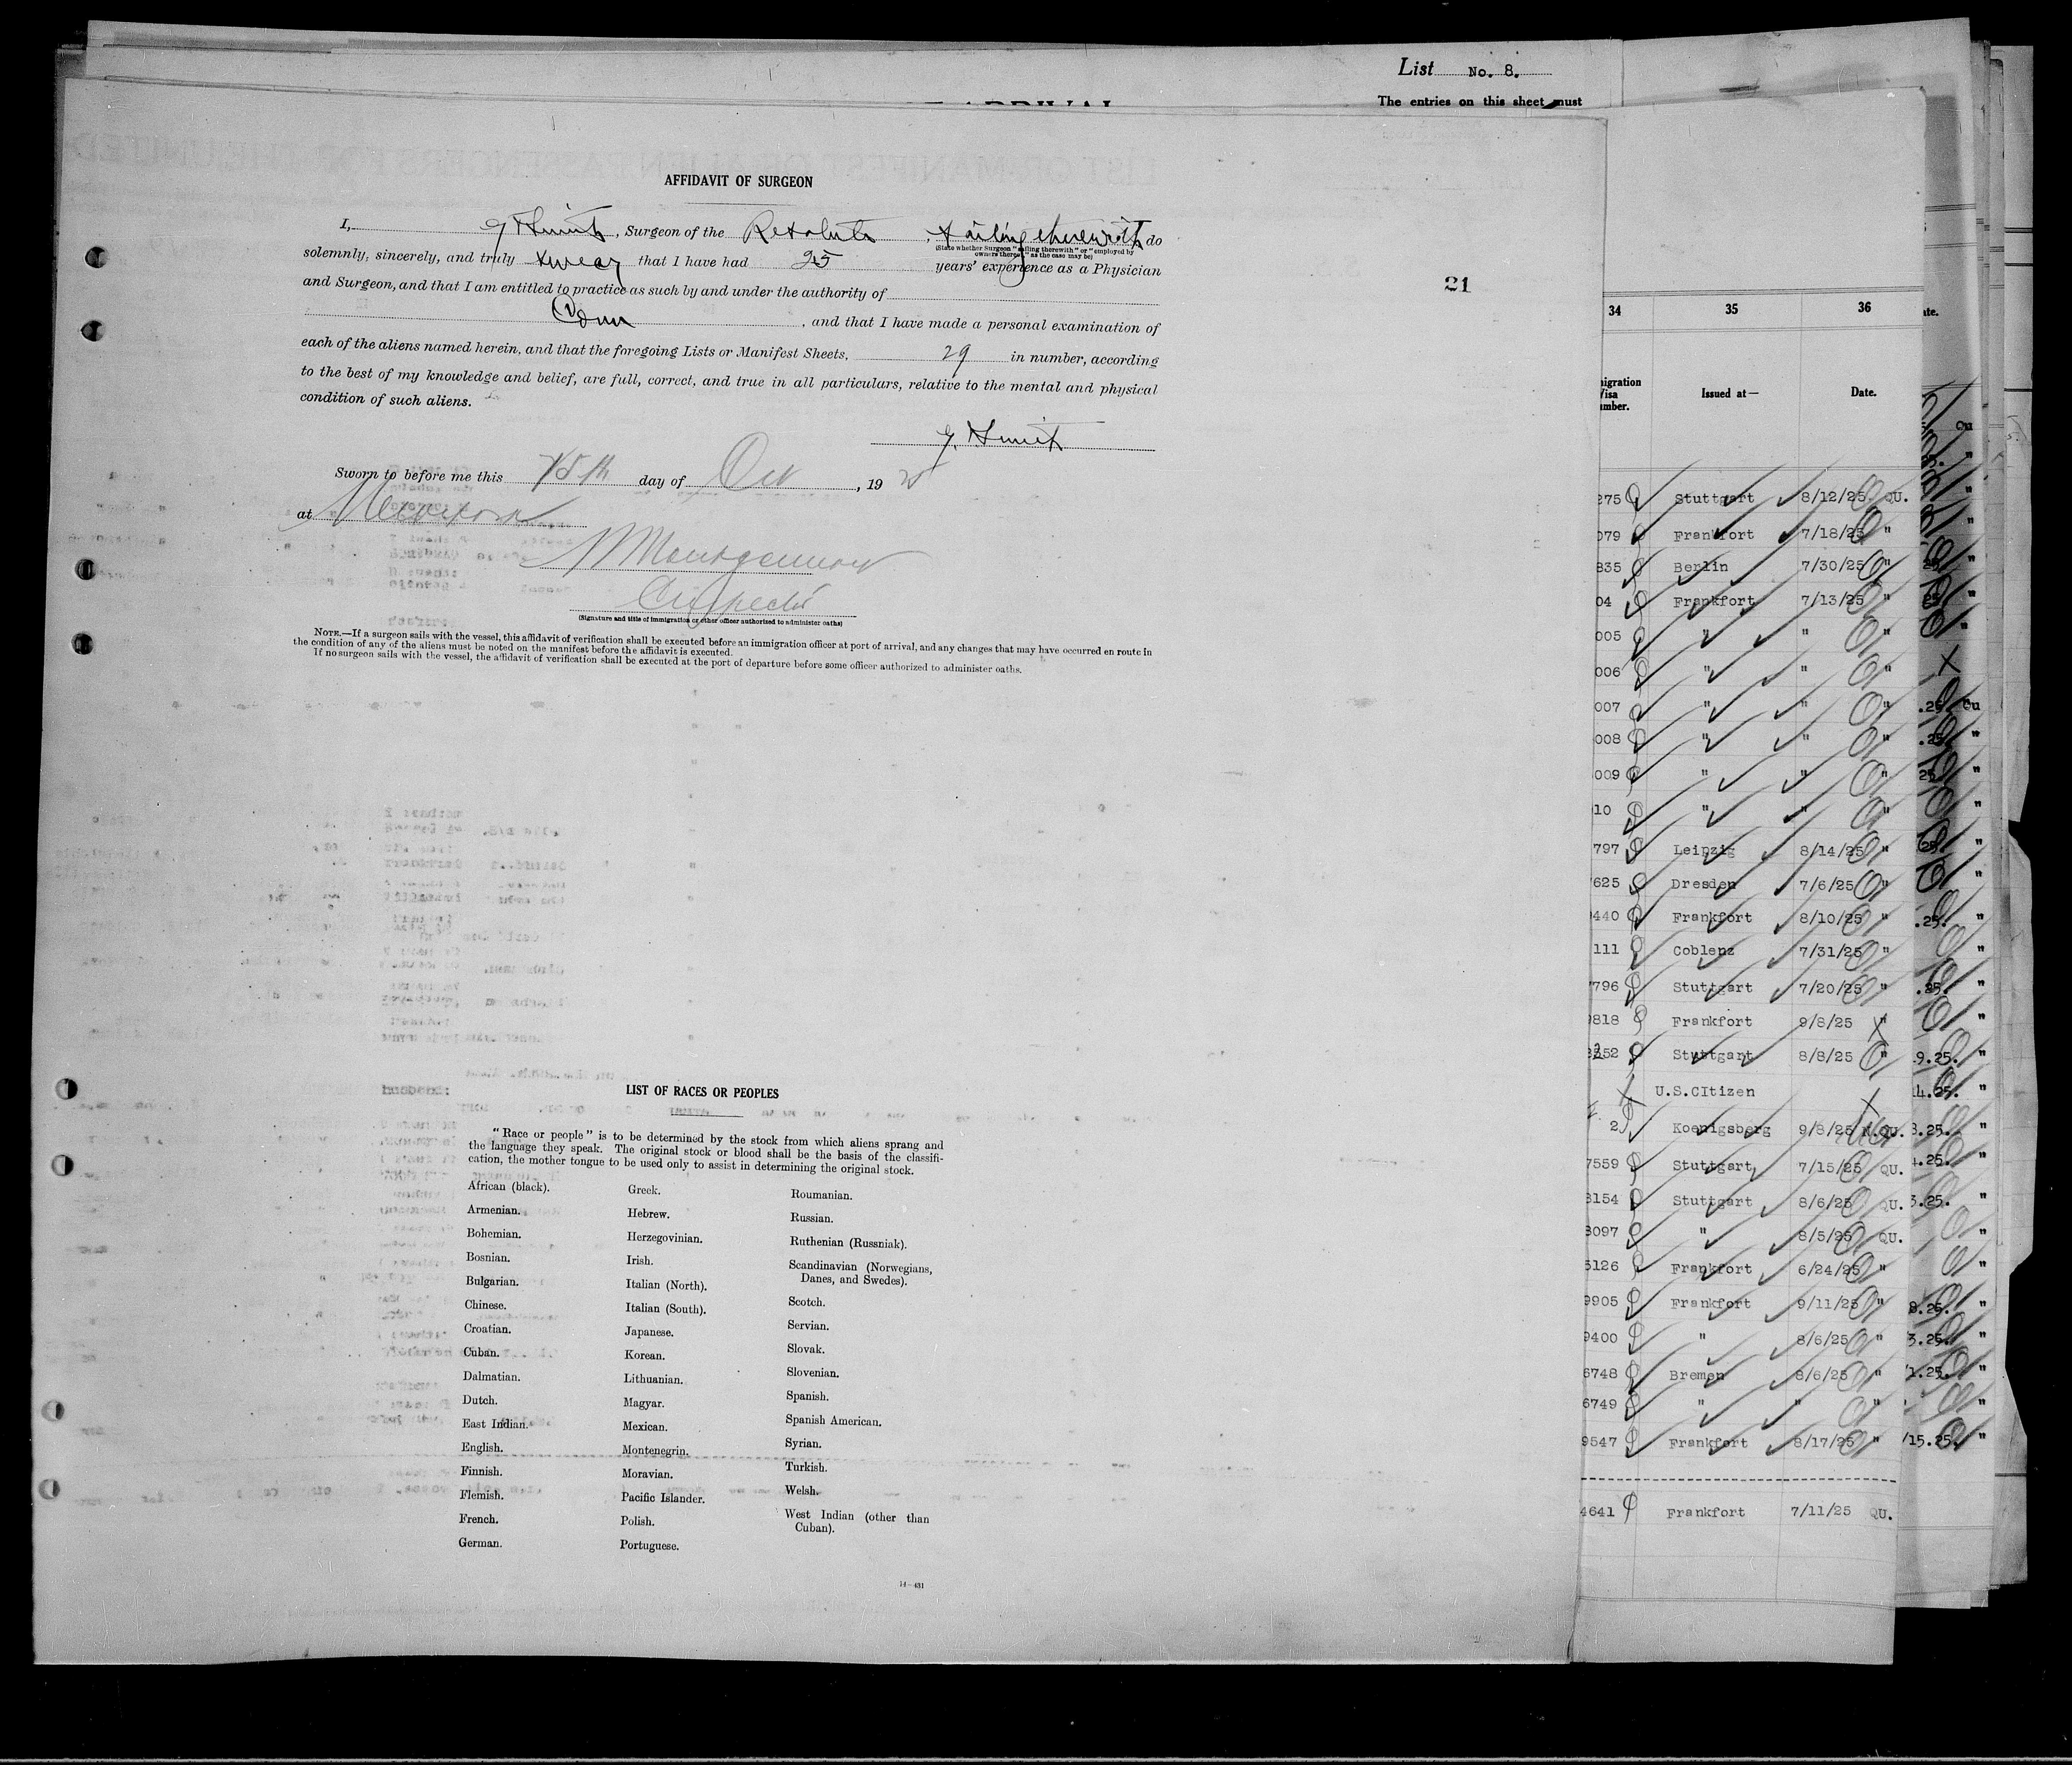 List No. 8.
The entries on this sheet must
AFFIDAVIT OF SURGEON
I, , Surgeon of the Resolute, sailing therewith do
(State whether Surgeon "sailing therewith" or "employed by
owners thereof," as the case may be)
solemnly, sincerely, and truly swear that I have had 25 years' experience as a Physician
and Surgeon, and that I am entitled to practice as such by and under the authority of
, and that I have made a personal examination of
each of the aliens named herein, and that the foregoing Lists or Manifest Sheets, 29 in number, according
to the best of my knowledge and belief, are full, correct, and true in all particulars, relative to the mental and physical
condition of such aliens.
Sworn to before me this 15th day of Oct, 19
at New York
Montgomery
(Signature and title of immigration or other officer authorized to administer oaths)
NOTE.—If a surgeon sails with the vessel, this affidavit of verification shall be executed before an immigration officer at port of arrival, and any changes that may have occurred en route in
the condition of any of the aliens must be noted on the manifest before the affidavit is executed.
If no surgeon sails with the vessel, the affidavit of verification shall be executed at the port of departure before some officer authorized to administer oaths.
21
LIST OF RACES OR PEOPLES
"Race or people" is to be determined by the stock from which aliens sprang and
the language they speak. The original stock or blood shall be the basis of the classifi-
cation, the mother tongue to be used only to assist in determining the original stock.
African (black).
Armenian.
Bohemian.
Bosnian.
Bulgarian.
Chinese.
Croatian.
Cuban.
Dalmatian.
Dutch.
East Indian.
English.
Finnish.
Flemish.
French.
German.
Greek.
Hebrew.
Herzegovinian.
Irish.
Italian (North).
Italian (South).
Japanese.
Korean.
Lithuanian.
Magyar.
Mexican.
Montenegrin.
Moravian.
Pacific Islander.
Polish.
Portuguese.
Roumanian.
Russian.
Ruthenian (Russniak).
Scandinavian (Norwegians,
Danes, and Swedes).
Scotch.
Servian.
Slovak.
Slovenian.
Spanish.
Spanish American.
Syrian.
Turkish.
Welsh.
West Indian (other than
Cuban).
14—431
34 35 36
Issued at— Date.
275 Stuttgart 8/12/25 QU.
079 Frankfort 7/18/25 "
835 Berlin 7/30/25 "
04 Frankfort 7/13/25 "
005 " " "
006 " " "
007 " " "
008 " " "
009 " " "
10 " " "
797 Leipzig 8/14/25 "
625 Dresden 7/6/25 "
440 Frankfort 8/10/25 "
111 Coblenz 7/31/25 "
796 Stuttgart 7/20/25 "
9818 Frankfort 9/8/25 "
2552 Stuttgart 8/8/25 "
U.S.CItizen
2 Koenigsberg 9/8/25 N.QU.
7559 Stuttgart 7/15/25 QU.
8154 Stuttgart 8/6/25 QU.
8097 " 8/5/25 QU.
6126 Frankfort 6/24/25 "
9905 Frankfort 9/11/25 "
9400 " 8/6/25 "
6748 Bremen 8/6/25 "
6749 " " "
9547 Frankfort 8/17/25 "
4641 Frankfort 7/11/25 QU.